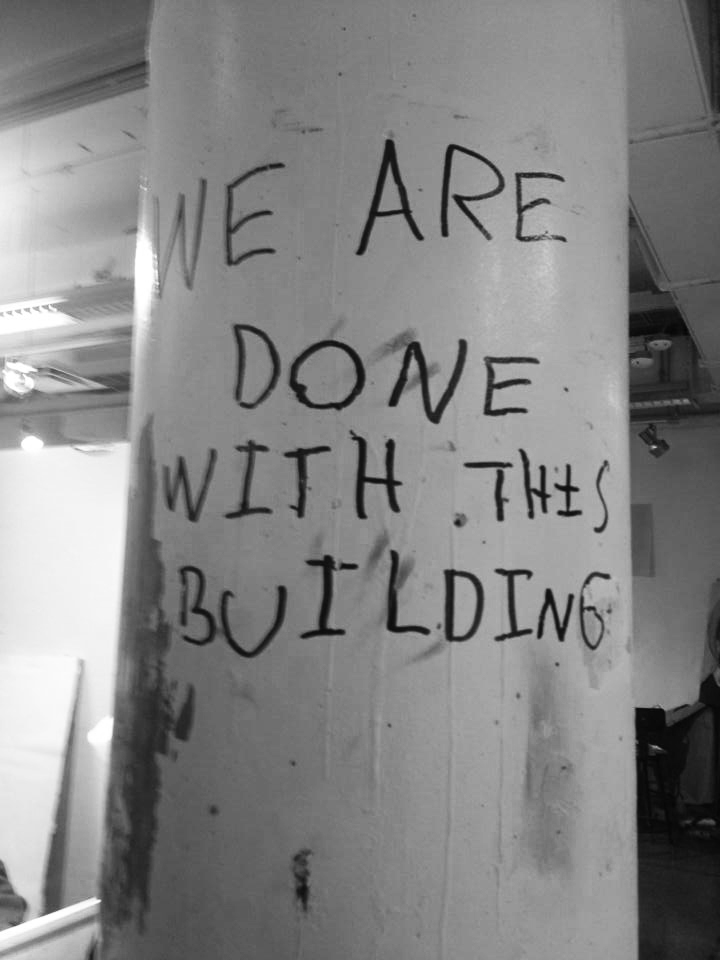 WE ARE
DONE
WITH THIS
BUILDING